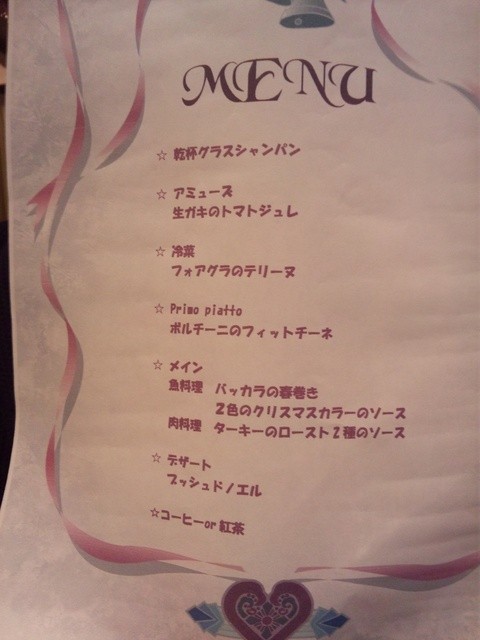 MENU
☆ 乾杯グラスシャンパン
☆ アミューズ
生ガキのトマトジュレ
☆ 冷菜
フォアグラのテリーヌ
☆ Primo piatto
ポルチーニのフィットチーネ
☆ メイン
魚料理 バッカラの春巻き
2色のクリスマスカラーのソース
肉料理 ターキーのロースト2種のソース
☆ デザート
ブッシュドノエル
☆コーヒーor紅茶